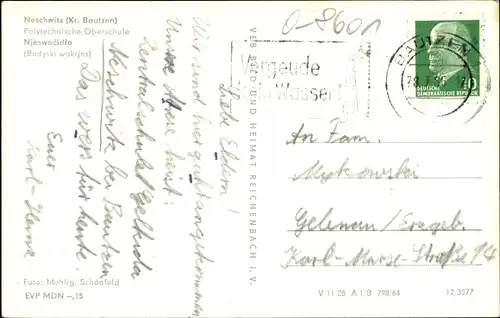 Neschwitz (Kr. Bautzen)
Polytechnische Oberschule
Njeswačidło
(Budyski wokrjes)
0-8601
Vergeude
Wasser!
BAUTZEN
10
DEUTSCHE
DEMOKRATISCHE REPUBLIK
Liebe Eltern!
Wir sind hier gut angekommen
Unsre Adresse heist:
Zentralschule
Neschwitz bei Bautzen
Das wers für heute.
Euer
Karl-Heinz
VEB BILD UND HEIMAT REICHENBACH I. V.
An Fam.
Mykowski
Gelenau/Erzgeb.
Karl-Marx-Straße 14
Foto: Mohlig, Schönfeld
EVP MDN -,15
V 11 28 A 1/B 798/64
12/3577